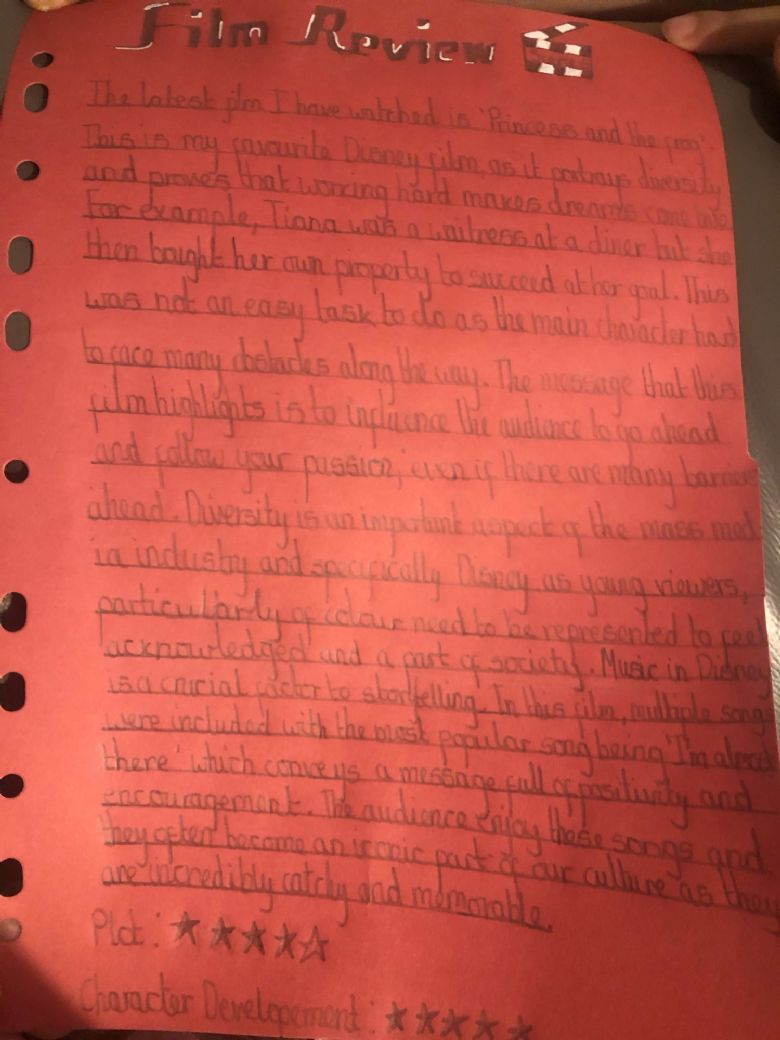 Film Review
The latest film I have watched is 'Princess and the frog'.
This is my favourite Disney film, as it portrays diversity
and proves that working hard makes dreams come true
For example, Tiana was a waitress at a diner but she
then bought her own property to succeed at her goal. This
was not an easy task to do as the main character had
to face many obstacles along the way. The message that this
film highlights is to influence the audience to go ahead
and follow your passion, even if there are many barriers
ahead. Diversity is an important aspect of the mass med
ia industry and specifically Disney as young viewers,
particularly of colour need to be represented to feel
acknowledged and a part of society. Music in Disney
is a crucial factor to storytelling. In this film, multiple songs
were included with the most popular song being 'I'm almost
there' which conveys a message full of positivity and
encouragement. The audience enjoy these songs and
they often become an iconic part of our culture as they
are incredibly catchy and memorable.
Plot : ★★★★☆
Character Developement : ★★★★★